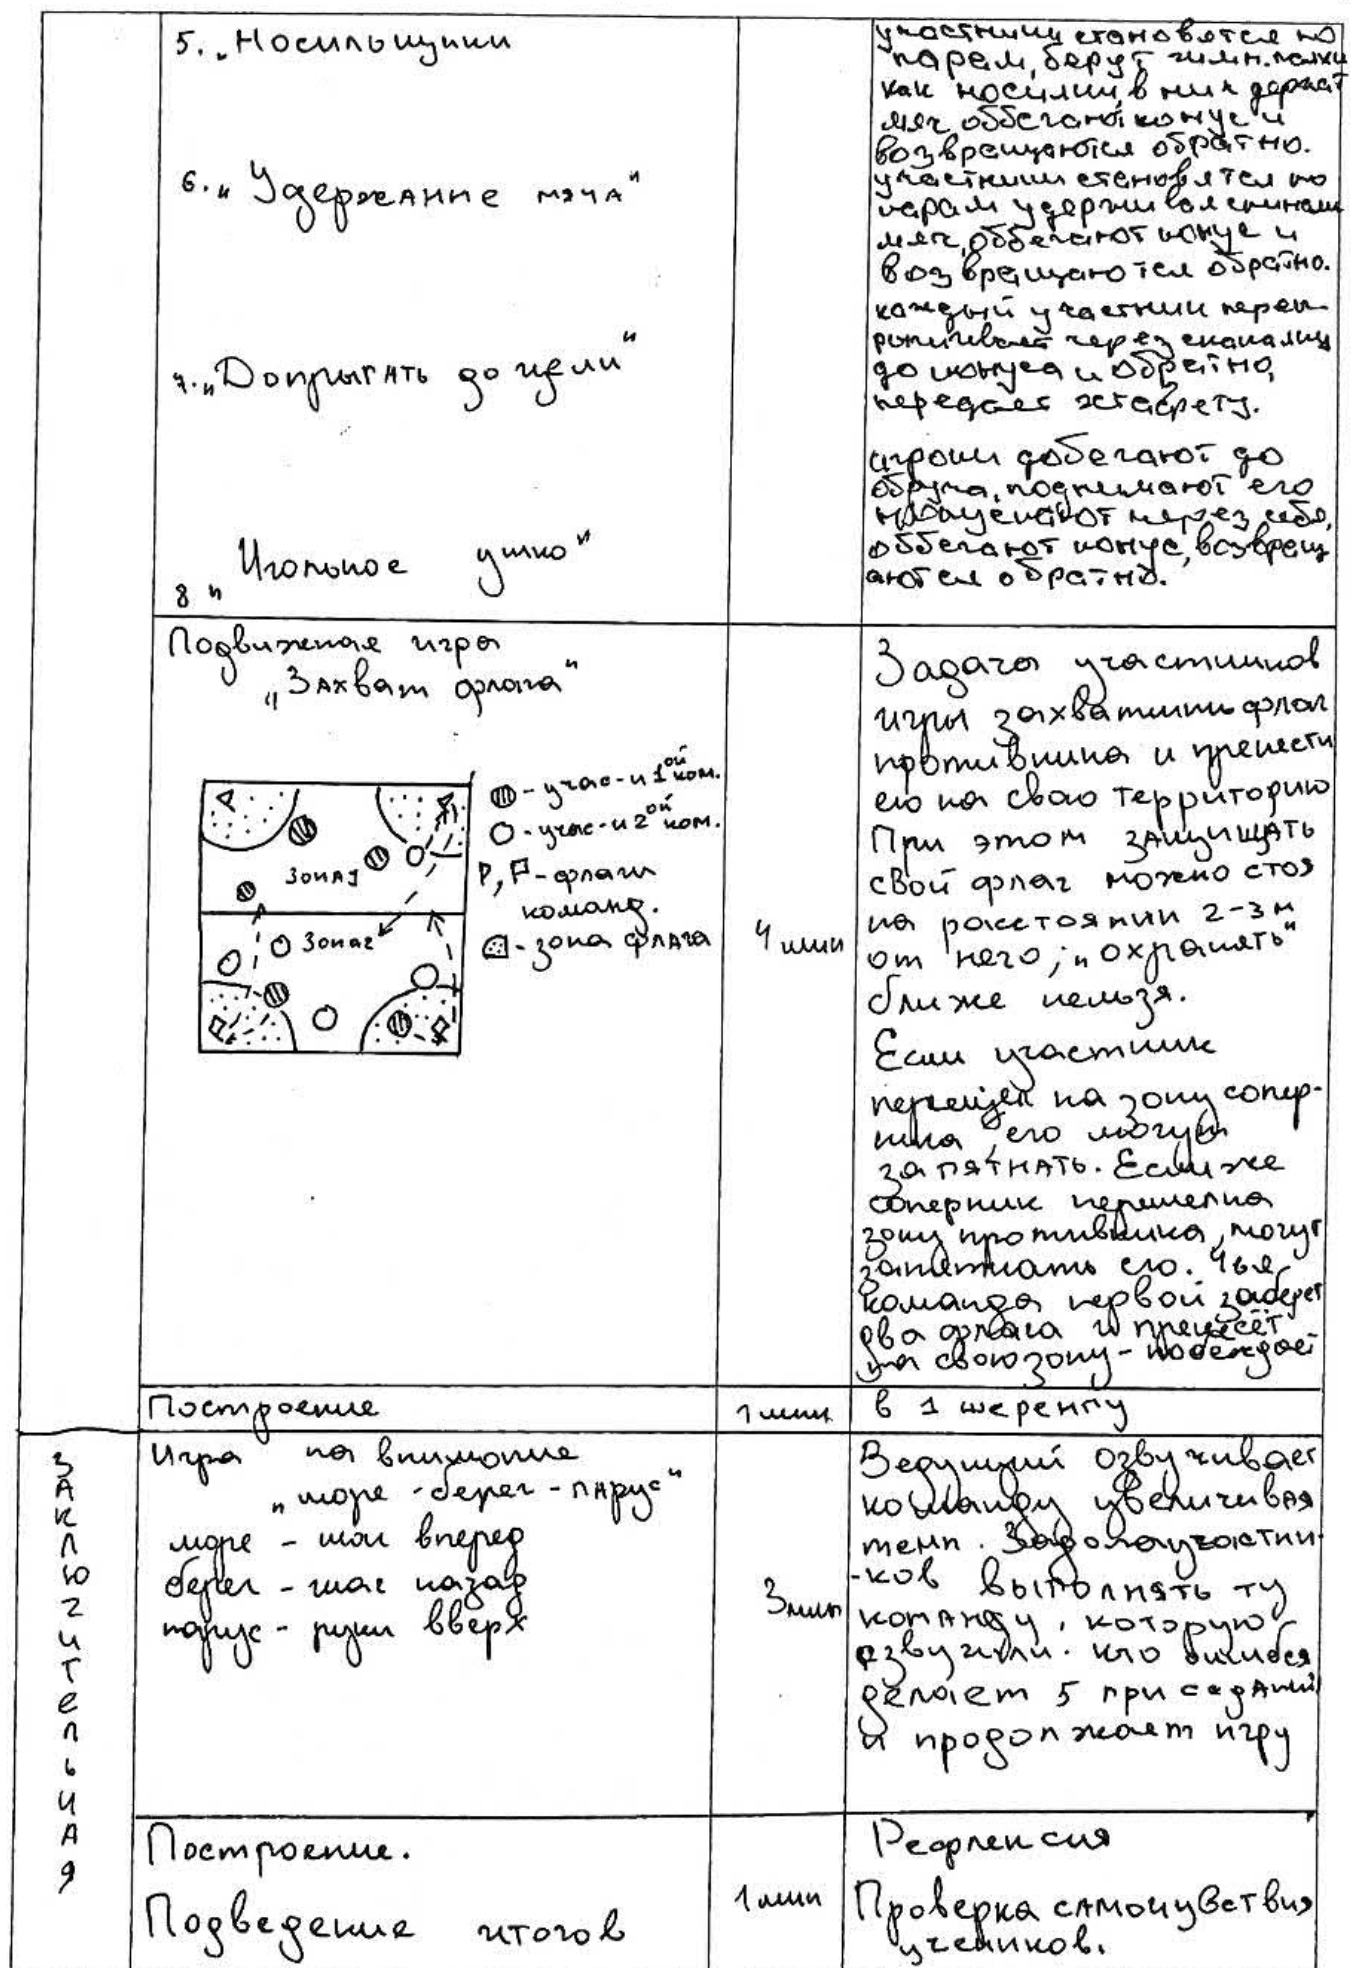 5. „Носильщики
участники становятся по
парам, берут гимн. палки
как носилки, в них держат
мяч оббегают конус и
возвращаются обратно.
6. „Удержание мяча"
участники становятся по
парам удерживая спинами
мяч, оббегают конус и
возвращаются обратно.
7. „Допрыгать до цели"
каждый участник перепрыгивает через скакалку
до конуса и обратно,
передает эстафету.
8 „Игольное ушко"
игроки добегают до
обруча, поднимают его
через себя,
оббегают конус, возвращ
аются обратно.
Подвижная игра
„Захват флага"
Зона 1
Зона 2
- учас-и 1ой ком.
- учас-и 2ой ком.
- флаги
команд.
- зона флага
4 мин
Задача участников
игры захватить флаг
противника и пренести
его на свою территорию
При этом защищать
свой флаг можно стоя
на расстоянии 2-3м
от него; „охранять"
ближе нельзя.
Если участник
перешёл на зону сопер-
ника, его могут
запятнать. Если же
соперник перешел на
зону противника, могут
запятнать его. Чья
команда первой заберет
два флага и пренесёт
на свою зону - побеждает
Построение
1 мин
в 1 шеренгу
ЗАКЛЮЧИТЕЛЬНАЯ
Игра на внимание
„море - берег - парус"
море - шаг вперед
берег - шаг назад
парус - руки вверх
3 мин
Ведущий озвучивает
команду увеличивая
темп. Задача участни-
-ков выполнять ту
команду, которую
озвучили. Кто ошибся
делает 5 приседаний
и продолжает игру
Построение.
Подведение итогов
1 мин
Рефлексия
Проверка самочувствия
учеников.